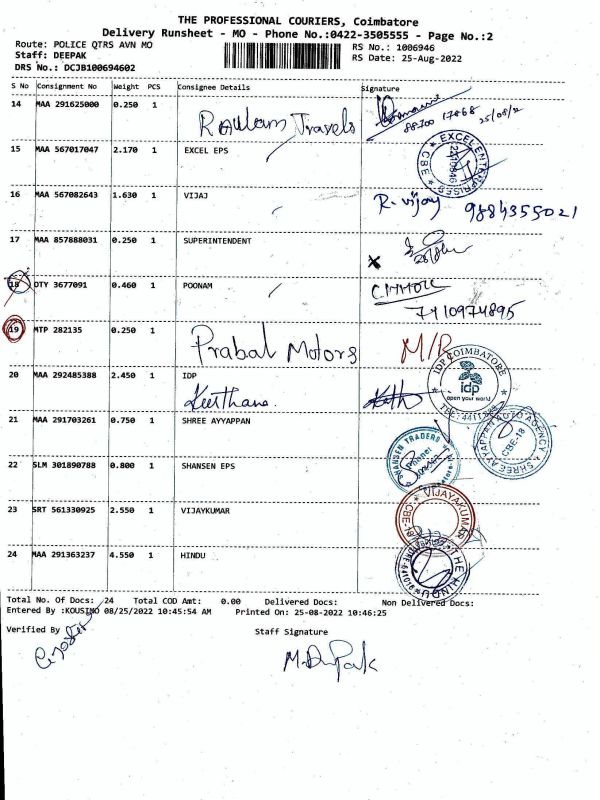 THE PROFESSIONAL COURIERS, Coimbatore
Delivery Runsheet - MO - Phone No.:0422-3505555 - Page No.:2
Route: POLICE QTRS AVN MO
RS No.: 1006946
Staff: DEEPAK
RS Date: 25-Aug-2022
DRS No.: DCJB100694602
S No Consignment No Weight PCS Consignee Details Signature
14 MAA 291625000 0.250 1 Travels 88700 17868
15 MAA 567017047 2.170 1 EXCEL EPS EXCEL ENTERPRISES CBE
16 MAA 567082643 1.630 1 VIJAJ R. Vijay 9884355021
17 MAA 857888031 0.250 1 SUPERINTENDENT
18 DTY 3677091 0.460 1 POONAM 7410974895
19 MTP 282135 0.250 1 Prabal Motors M/R
20 MAA 292485388 2.450 1 IDP Keerthana. IDP COIMBATORE idp open your world
21 MAA 291703261 0.750 1 SHREE AYYAPPAN SHREE AYYAPPAN AUTO AGENCY CBE-18
22 SLM 301890788 0.800 1 SHANSEN EPS SHANSEN TRADERS
23 SRT 561330925 2.550 1 VIJAYKUMAR VIJAYAKUMAR
24 MAA 291363237 4.550 1 HINDU THE HINDU
Total No. Of Docs: 24 Total COD Amt: 0.00 Delivered Docs: Non Delivered Docs:
Entered By :KOUSINO 08/25/2022 10:45:54 AM Printed On: 25-08-2022 10:46:25
Verified By
Staff Signature